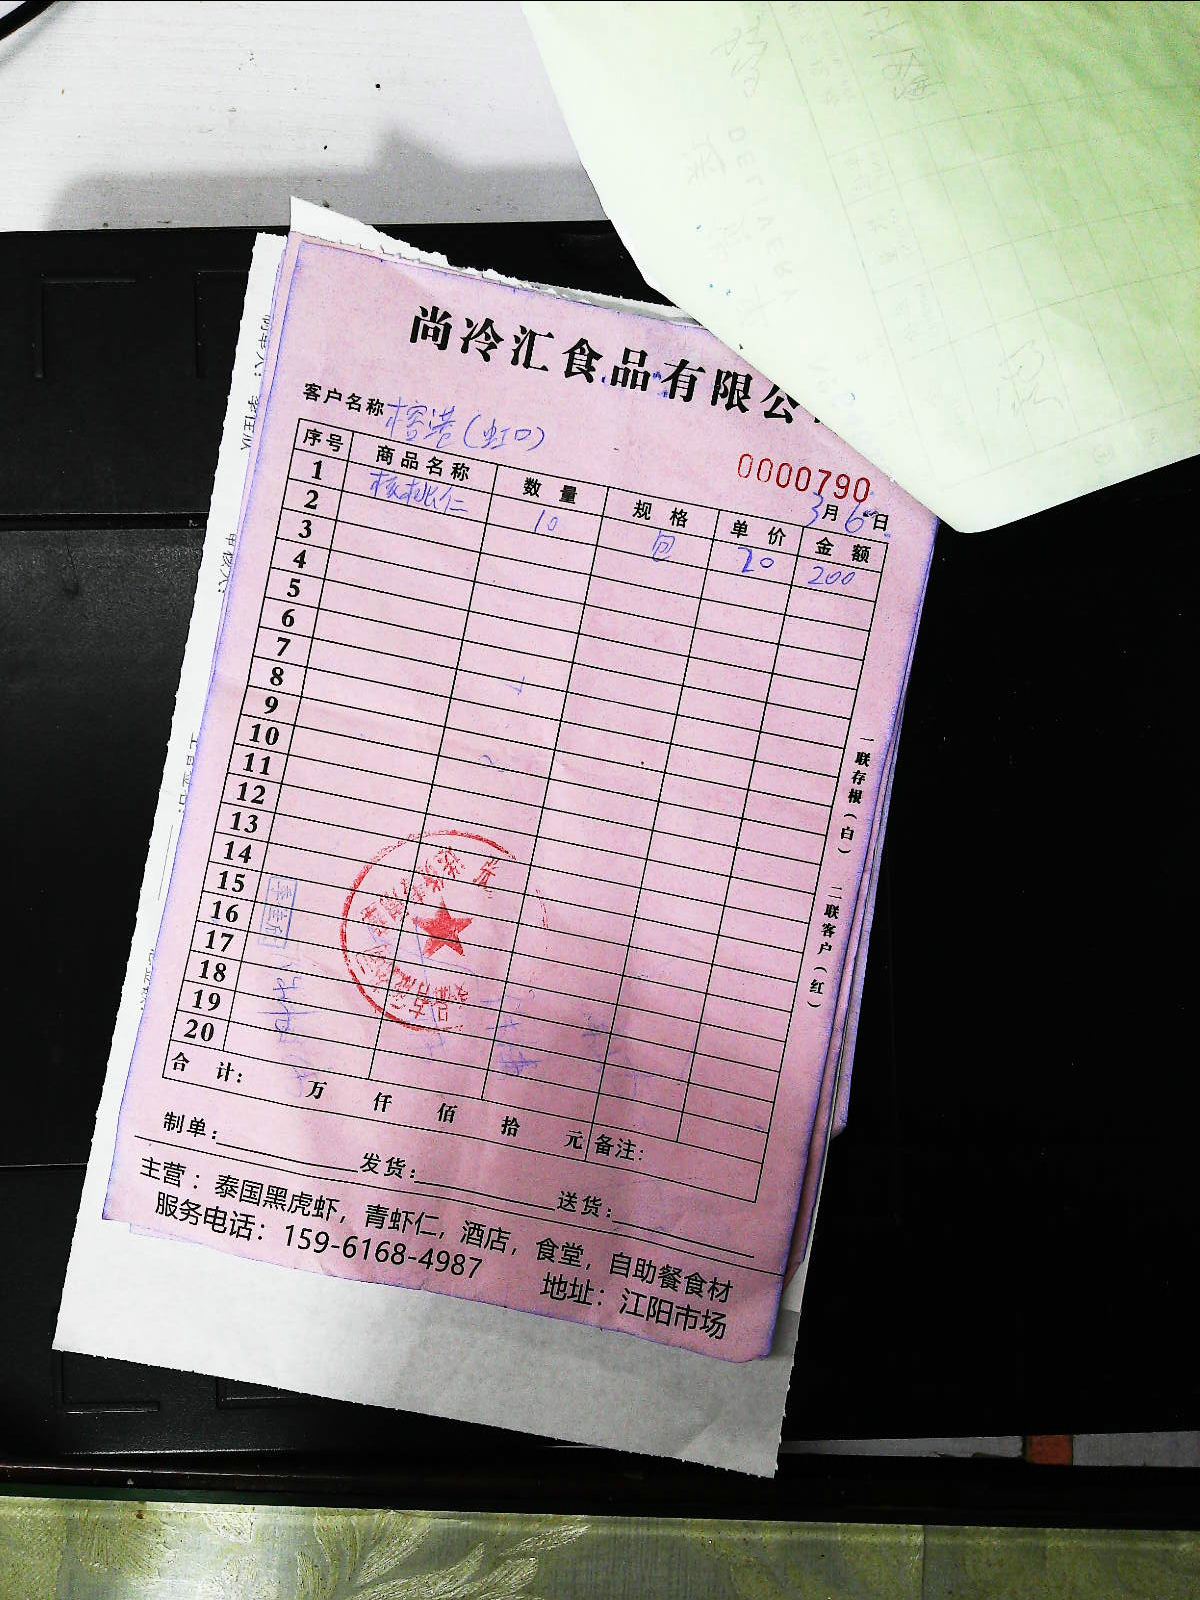 尚冷汇食品有限公
客户名称 榕港（虹口）
0000790
3月6日
序号 商品名称 数量 规格 单价 金额
1 核桃仁 10 包 20 200
2
3
4
5
6
7
8
9
10
11
12
13
14
15
16
17
18
19
20
合计： 万 仟 佰 拾 元 备注：
制单： 发货： 送货：
主营：泰国黑虎虾，青虾仁，酒店，食堂，自助餐食材
服务电话：159-6168-4987 地址：江阳市场
一联存根（白） 二联客户（红）